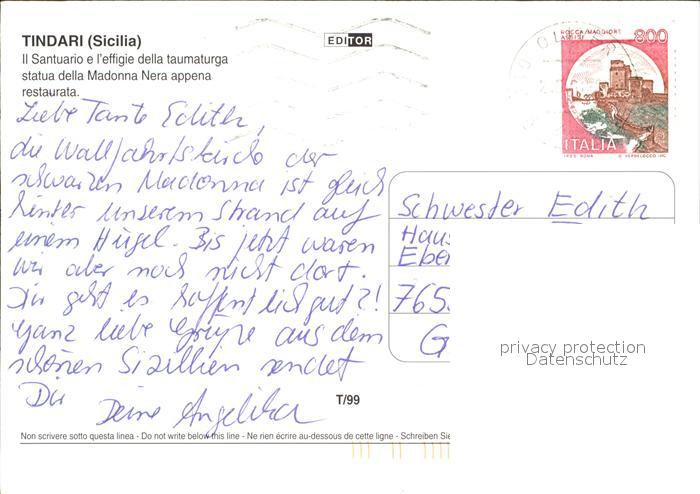 TINDARI (Sicilia)
Il Santuario e l'effigie della taumaturga
statua della Madonna Nera appena
restaurata.
EDITOR
ROCCA MAGGIORE
ASSISI
800
ITALIA
Liebe Tante Edith,
die Wallfahrtskirche der
schwarzen Madonna ist gleich
hinter unserem Strand auf
einem Hügel. Bis jetzt waren
wir aber noch nicht dort.
Dir geht es hoffentlich gut?!
Ganz liebe Grüße aus dem
schönen Sizilien sendet
Dir Deine Angelika
Schwester Edith
Haus
Eber
765
G
privacy protection
Datenschutz
T/99
Non scrivere sotto questa linea - Do not write below this line - Ne rien écrire au-dessous de cette ligne - Schreiben Sie